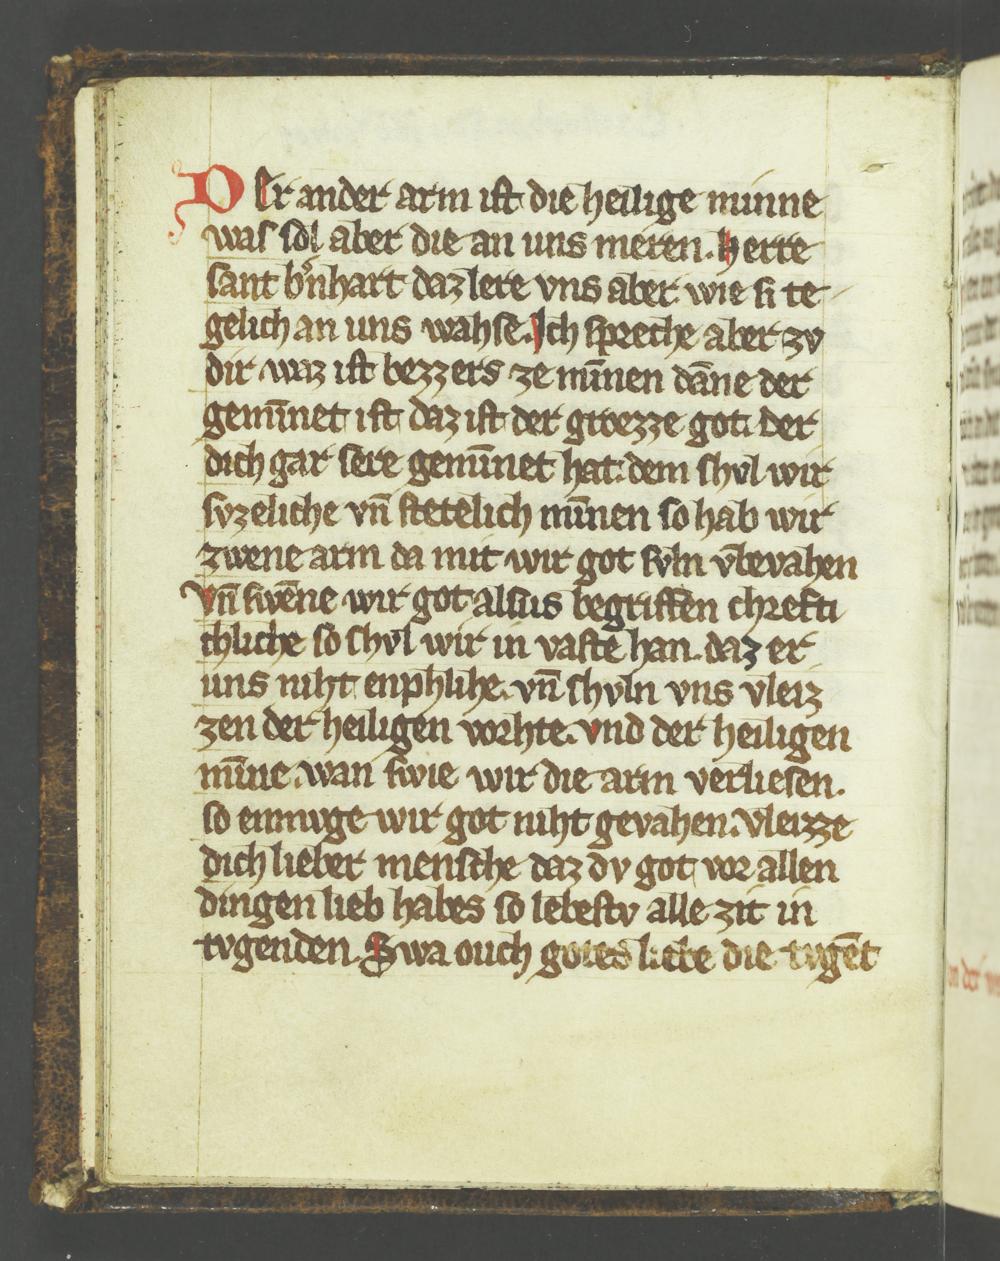 Der ander arm ist die heilige minne
was sol aber die an uns meren. herre
sant b'nhart daz lere vns aber wie si te
gelich an uns wahse. Ich spreche aber zv
dir waz ist bezzers ze mīnen dāne der
gemīnet ist daz ist der grozze got. Der
dich gar sere gemīnet hat. dem shvl wir
svzeliche vn̄ stetelich mīnen so hab wir
zwene arm da mit wir got svln v̄bevahen
Vn̄ swēne wir got alsus begriffen chrefti
chliche so shvl wir in vaste han. daz er
uns niht enphlihe. vn̄ shvln vns vleiz
zen der heiligen vorhte. vnd der heiligen
mīne. wan swie wir die arm verliesen.
so enmvge wir got niht gevahen. Vleizze
dich lieber mensche daz dv got vor allen
dingen lieb habes so lebestv alle zit in
tvgenden. Swa ouch gotes liebe die tvgēt